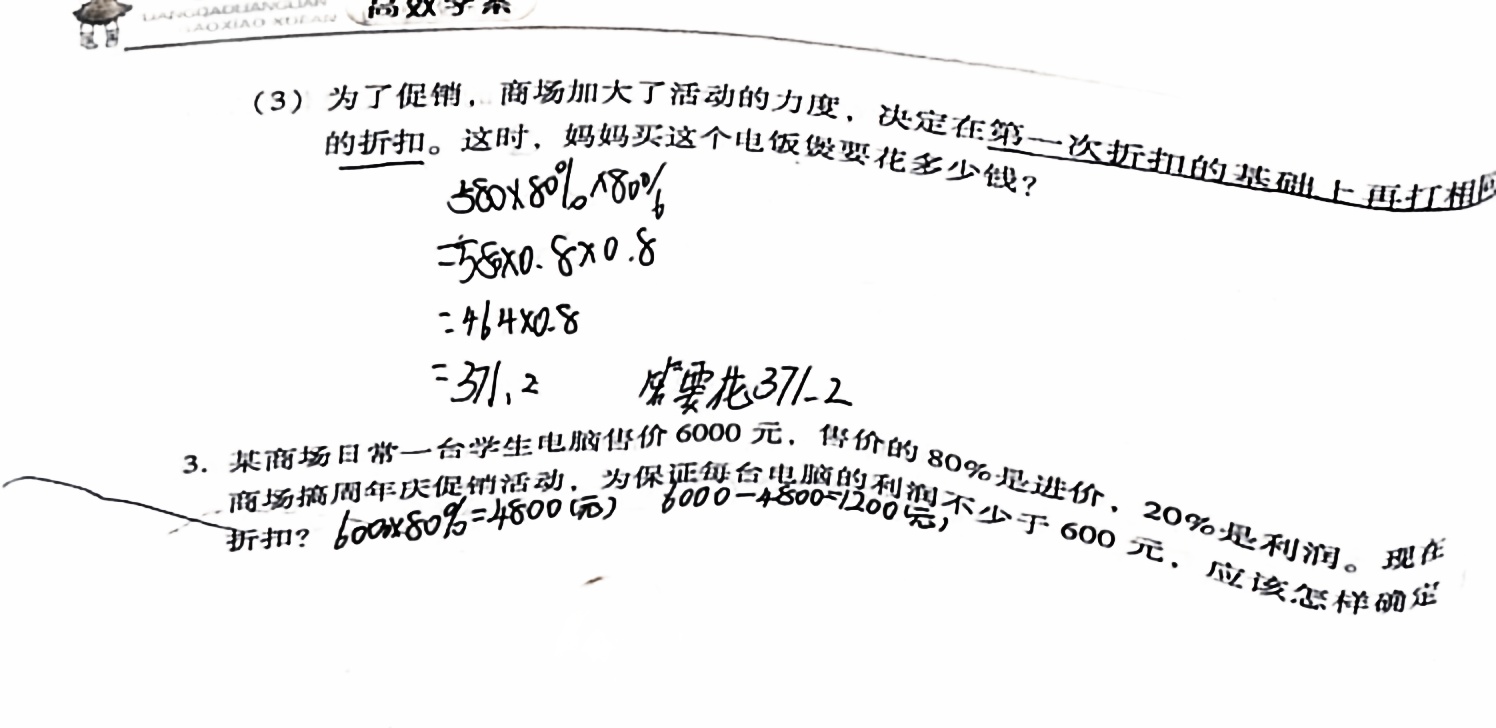 LIANGDADUIANGUAN
GAOXIAO XUEAN
高效学案
(3) 为了促销，商场加大了活动的力度，决定在第一次折扣的基础上再打相同
的折扣。这时，妈妈买这个电饭煲要花多少钱？
580×80%×80%
=580×0.8×0.8
=464×0.8
=371.2 需要花371.2
3. 某商场日常一台学生电脑售价6000元，售价的80%是进价，20%是利润。现在
商场搞周年庆促销活动，为保证每台电脑的利润不少于600元，应该怎样确定
折扣？ 6000×80%=4800(元) 6000-4800=1200(元)